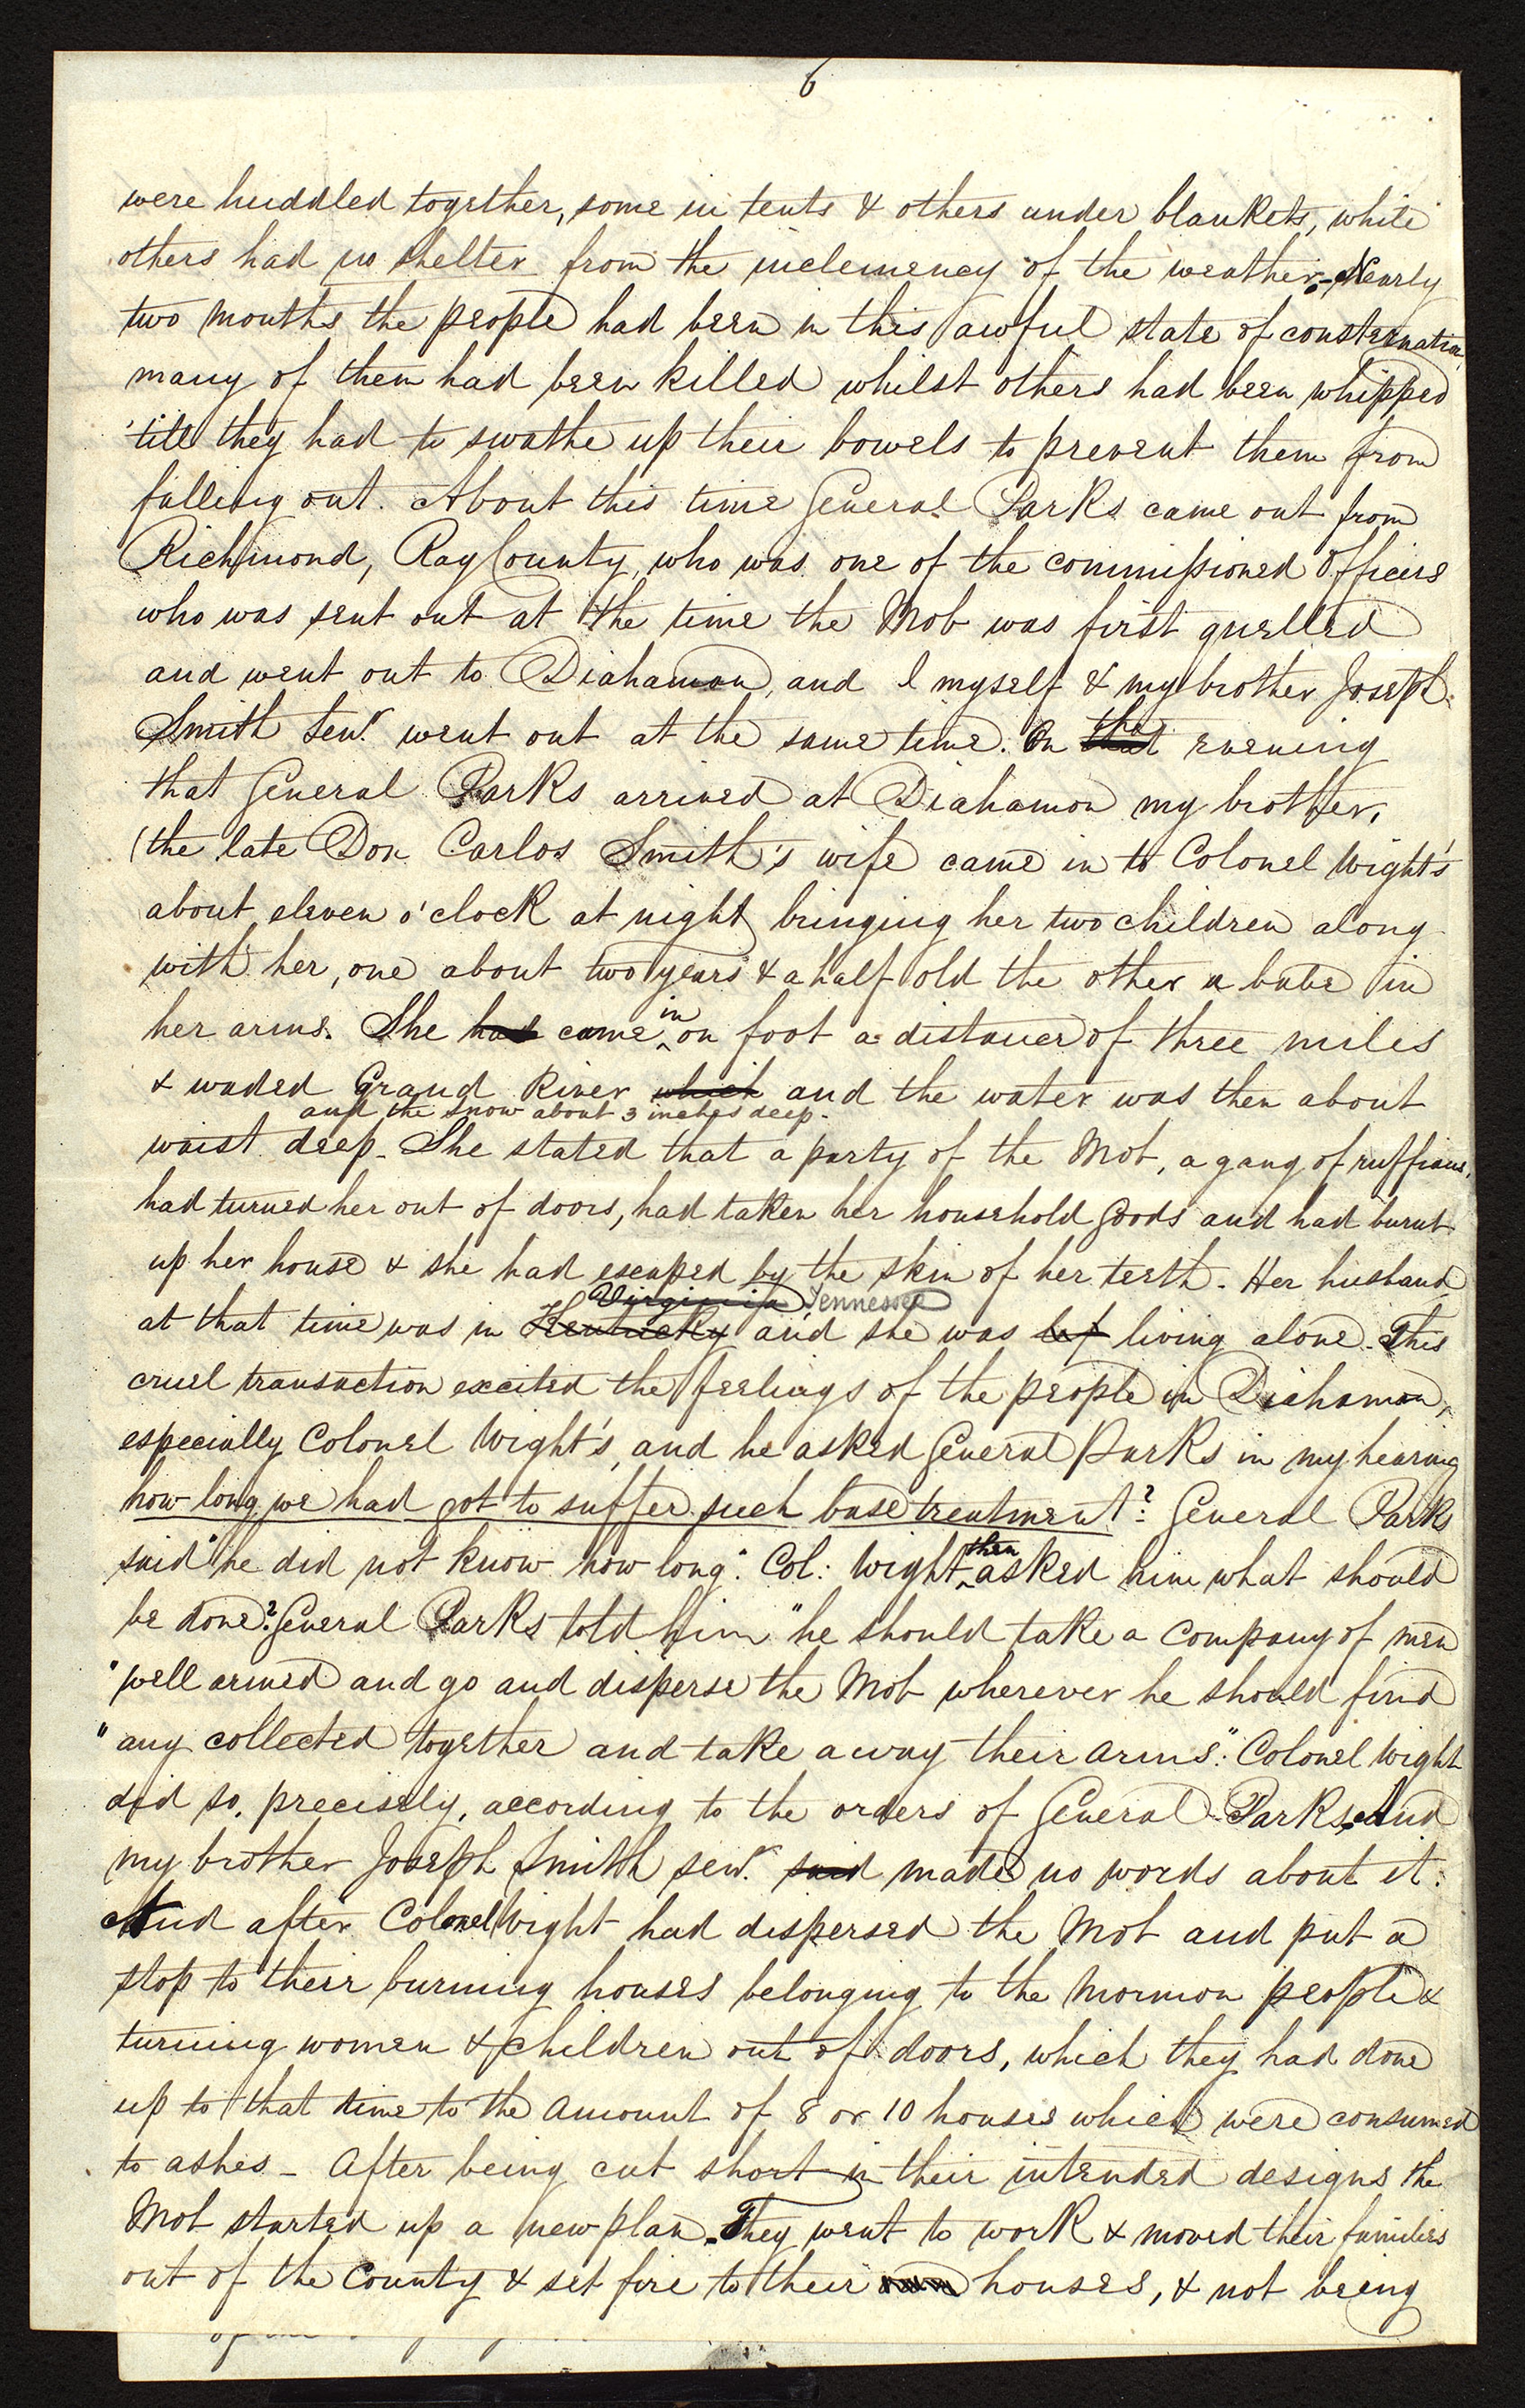 6
were huddled together, some in tents & others under blankets, while
others had no shelter from the inclemency of the weather. Nearly
two months the people had been in this awful state of consternation
many of them had been killed whilst others had been whipped
'till they had to swathe up their bowels to prevent them from
falling out. About this time General Parks came out from
Richmond, Ray County, who was one of the commissioned Officers
who was sent out at the time the Mob was first quelled
and went out to Diahamon, and I myself & my brother Joseph
Smith Senr. went out at the same time. On that the evening
that General Parks arrived at Diahamon my brother,
(the late Don Carlos Smith's wife came in to Colonel Wight's
about eleven o'clock at night bringing her two children along
with her, one about two years & a half old the other a babe in
her arms. She had came in on foot a distance of three miles
& waded Grand River which and the water was then about
and the snow about 3 inches deep.
waist deep - She stated that a party of the Mob, a gang of ruffians,
had turned her out of doors, had taken her household Goods and had burnt
up her house & she had escaped by the skin of her teeth - Her husband
Virginia Tennessee
at that time was in Kentucky and she was lef living alone. This
cruel transaction excited the feelings of the people in Diahamon,
especially Colonel Wight's, and he asked General Parks in my hearing
how long we had got to suffer such base treatment? General Parks
said "he did not know how long." Col: Wight then asked him what should
be done? General Parks told him "he should take a Company of men
"well armed and go and disperse the Mob wherever he should find
"any collected together and take away their arms." Colonel Wight
did so, precisely, according to the orders of General Parks, And
my brother Joseph Smith senr. said made no words about it:
And after Colonel Wight had dispersed the Mob and put a
stop to their burning houses belonging to the Mormon people &
turning women & children out of doors, which they had done
up to that time to the amount of 8 or 10 houses which were consumed
to ashes - After being cut short in their intended designs the
Mob started up a new plan. They went to work & moved their families
out of the County & set fire to their houses, & not being